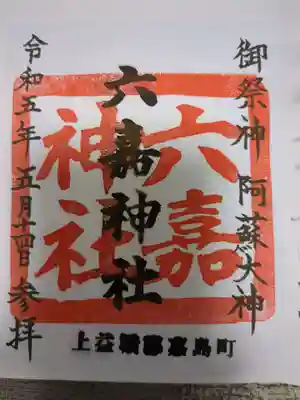 御祭神 阿蘇大神
六嘉神社
六嘉
神社
令和五年五月十四日参拝
上益城郡嘉島町